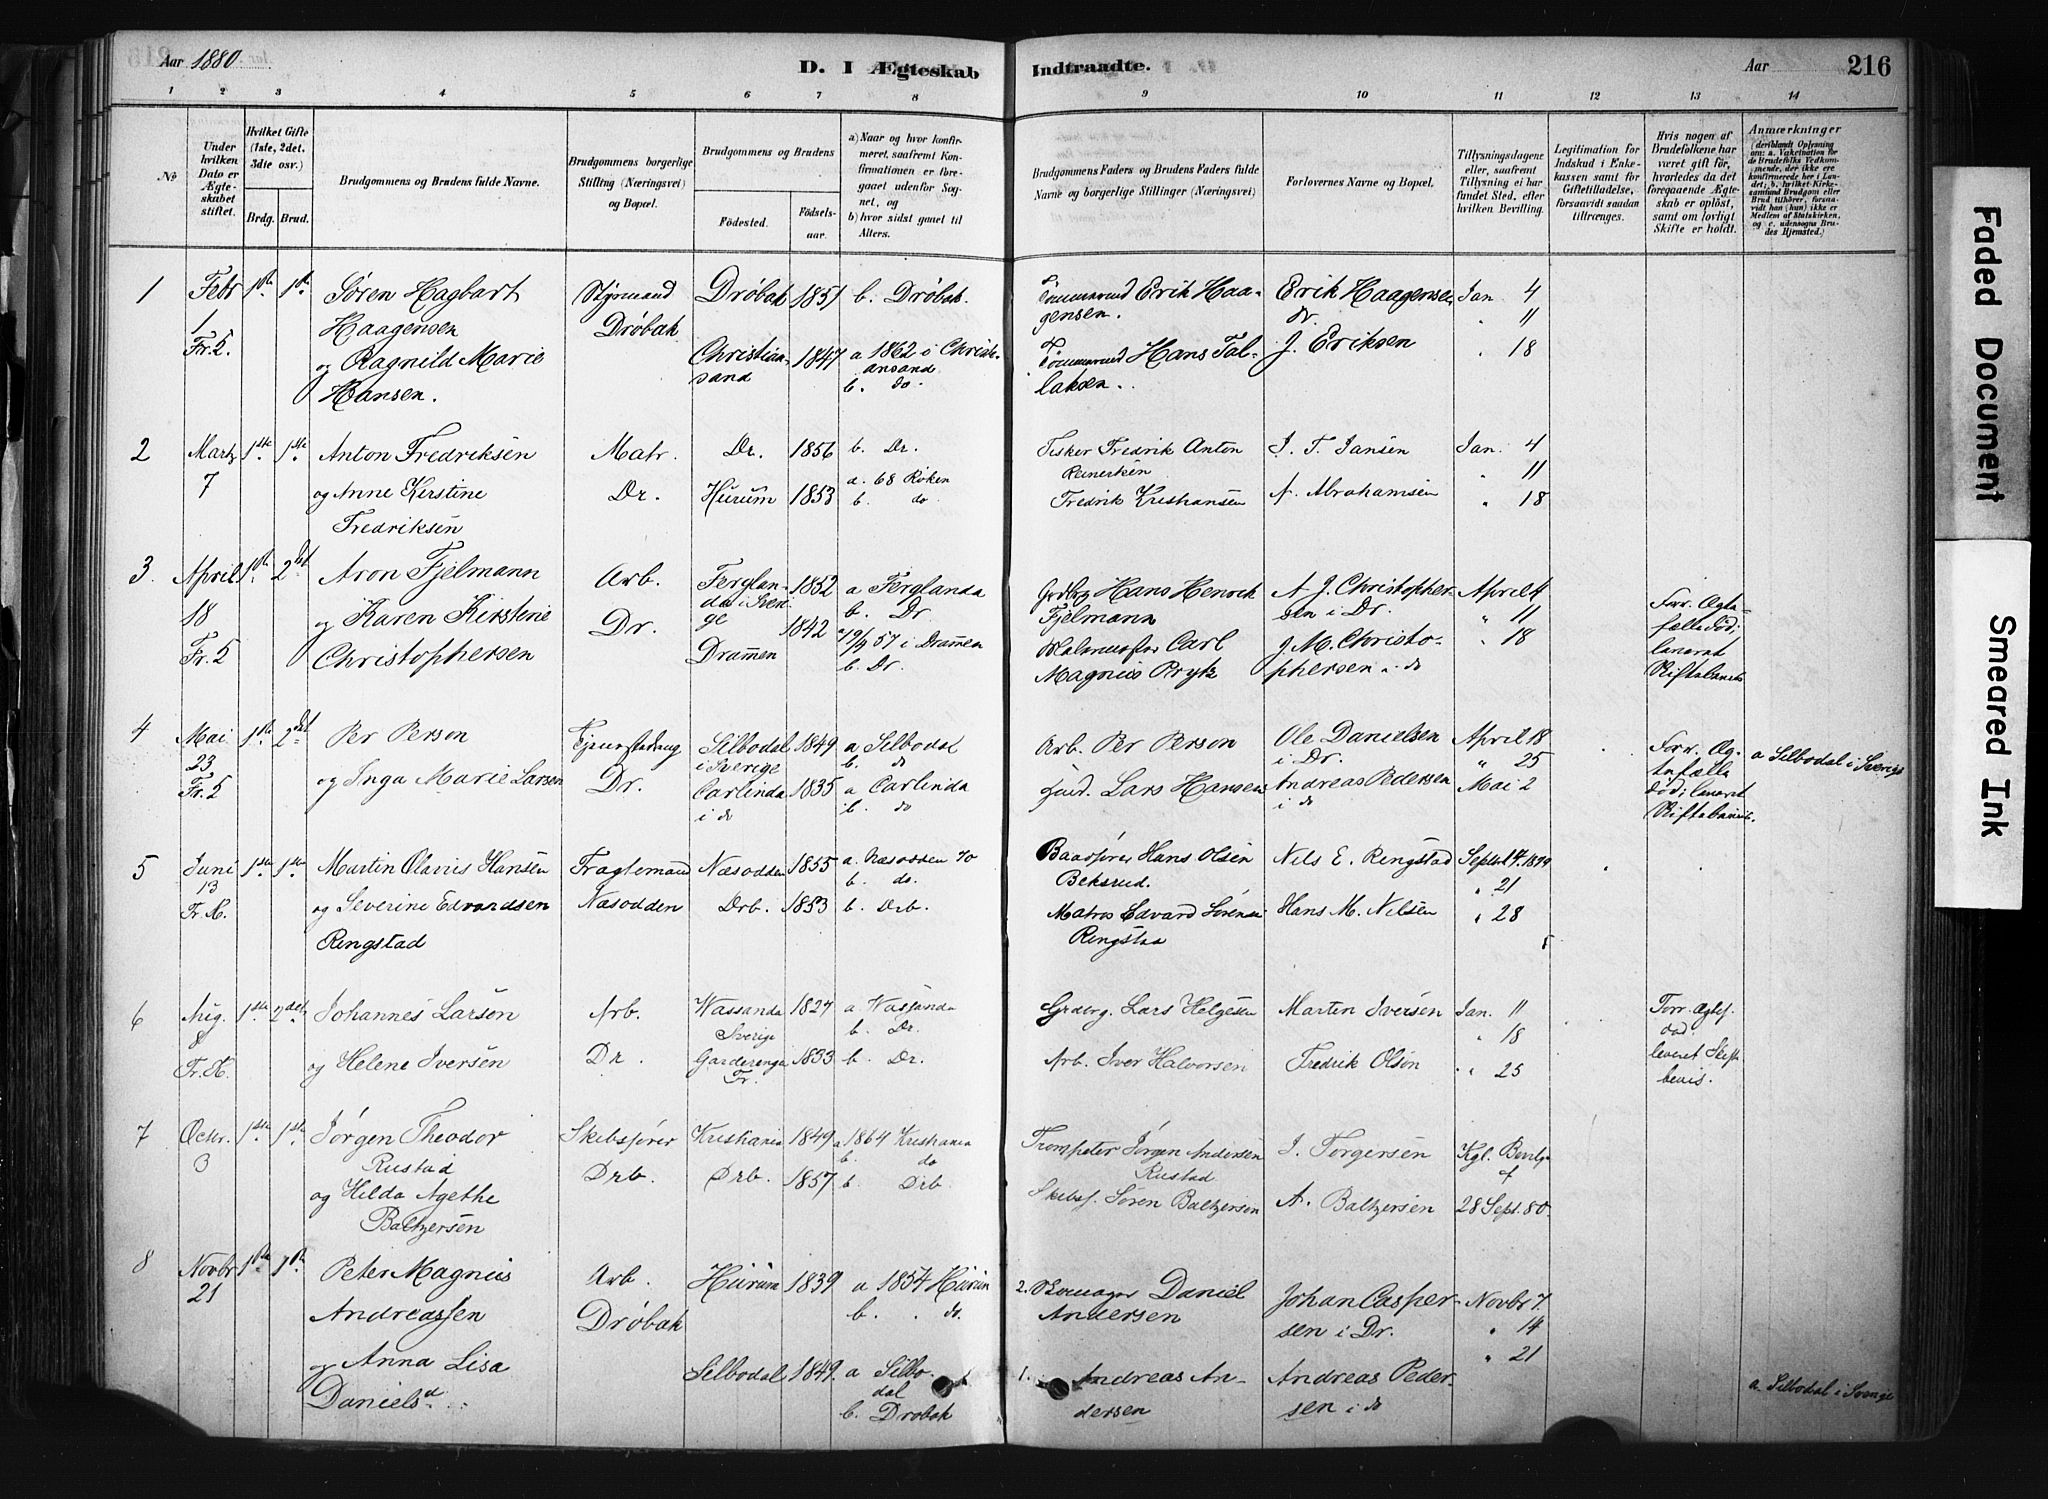 Aar 1880.
D. I Ægteskab Indtraadte.
Aar 216
1 2 3 4 5 6 7 8 9 10 11 12 13 14
No
Under hvilken Dato er Ægteskabet stiftet.
Hvilket Gifte (1ste, 2det, 3die osv.)
Brdg. Brud.
Brudgommens og Brudens fulde Navne.
Brudgommens borgerlige Stilling (Næringsvei) og Bopæl.
Brudgommens og Brudens
Fødested.
Fødselsaar.
a) Naar og hvor konfirmeret, saafremt Konfirmationen er foregaaet udenfor Sognet, og
b) hvor sidst gaaet til Alters.
Brudgommens Faders og Brudens Faders fulde Navne og borgerlige Stillinger (Næringsvei)
Forlovernes Navne og Bopæl.
Tillysningsdagene eller, saafremt Tillysning ei har fundet Sted, efter hvilken Bevilling.
Legitimation for Indskud i Enkekassen samt for Giftetilladelse, forsaavidt saadan tiltrænges.
Hvis nogen af Brudefolkene har været gift før, hvorledes da det foregaaende Ægteskab er opløst, samt om lovligt Skifte er holdt.
Anmærkninger
1 Febr 1ste 1ste Søren Hagbart Styrmand Drøbak 1851 b. Drøbak. Tømmermd Erik Haa- Erik Haagensen Jan. 4
1 Haagensen Drøbak gensen. dr. " 11
Fr. 5. og Ragnild Marie Christian- 1847 a 1862 i Christi- Tømmermd Hans Tal- J. Eriksen " 18
Hansen. sand ansand laksen.
b. do
2 Marts 1ste 1ste Anton Fredriksen Matr. Dr. 1856 b. Dr. Fisker Fredrik Anton J. T. Jansen Jan. 4
7 og Anne Kirstine Dr. Hurum 1853 a. 68 Røken Reinertsen A. Abrahamsen " 11
Fredriksen b. do Fredrik Kristiansen " 18
3 April 1ste 2det Aron Fjelmann Arb. Ferglan- 1852 a Ferglanda Hans Henrik A. J. Christopher- April 4
18 og Karen Kirstine Dr. da i Sveri- b. Dr. Fjelmann sen i Dr. " 11 Forr. Ægte-
Fr. 5 Christophersen ge 1842 19/9 57 i Drammen Carl J. M. Christo- " 18 fælle død;
Drammen b. Dr. Magnus Pryts phersen i do
4 Mai 1ste 2det Per Person Silbodal 1849 a Silbodal Arb. Per Person Ole Danielsen April 18 Forr. Æg- a Silbodal i Sverige
23 og Inga Marie Larsen Dr. i Sverige b. do i Dr. " 25 tefælle
Fr. 5 Carlinda 1835 a Carlinda Gaud. Lars Hansen Andreas Pedersen Mai 2 død;
i do b. do i do
5 Juni 1ste 1ste Martin Olaus Hansen Fragtemand Næsodden 1855 a. Næsodden 70 Hans Olsen Nils E. Ringstad Septbr 14 1879
13 og Severine Edvardsen Næsodden Drb. 1853 b. do. Beksrud. " 21
Fr. K. Ringstad b. Drb. Matros Edvard Sørensen Hans M. Nilsen " 28
Ringstad
6 Aug. 1ste 2det Johannes Larsøn Arb. Wassanda 1827 a Wassanda Lars Helgesen Martin Iversen Jan. 11 Forr. Ægtef.
8 Sverige b. Dr. " 18 død.
Fr. K. og Helene Iversen Dr. 1833 b. Dr. Arb. Iver Halvorsen Fredrik Olsøn " 25 leveret Skifte
Fr. bevis.
7 Octbr. 1ste 1ste Jørgen Theodor Skibsfører Kristiania 1849 a 1864 Kristiania Trompeter Jørgen Andersen J. Torgersen Kgl. Bevilg.
3 Rustad b. do Rustad af
og Hilda Agethe Drb. Drb. 1857 b. Drb Skibsf. Søren Baltzersen A. Baltzersen 28 Sept. 80.
Baltzersen
8 Novbr 1ste 1ste Peter Magnus Arb. Hurum 1839 a 1854 Hurum 2. Daniel Johan Casper- Novbr 7.
21 Andreassen Drøbak b. do. Andersen sen i Dr. " 14
og Anna Lisa Silbodal 1849 a Silbo- 1. Andreas An- Andreas Peder- " 21
Daniels d. dal dersen sen i do a. Silbodal i Sverige
b. Drøbak
Faded Document
Smeared Ink